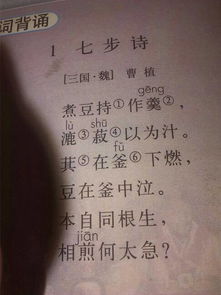 词背诵
1 七步诗
[三国·魏] 曹植
gēng
煮豆持①作羹②,
lù shū
漉③菽④以为汁。
fǔ
萁⑤在釜⑥下燃,
豆在釜中泣。
本自同根生,
jiān
相煎何太急?